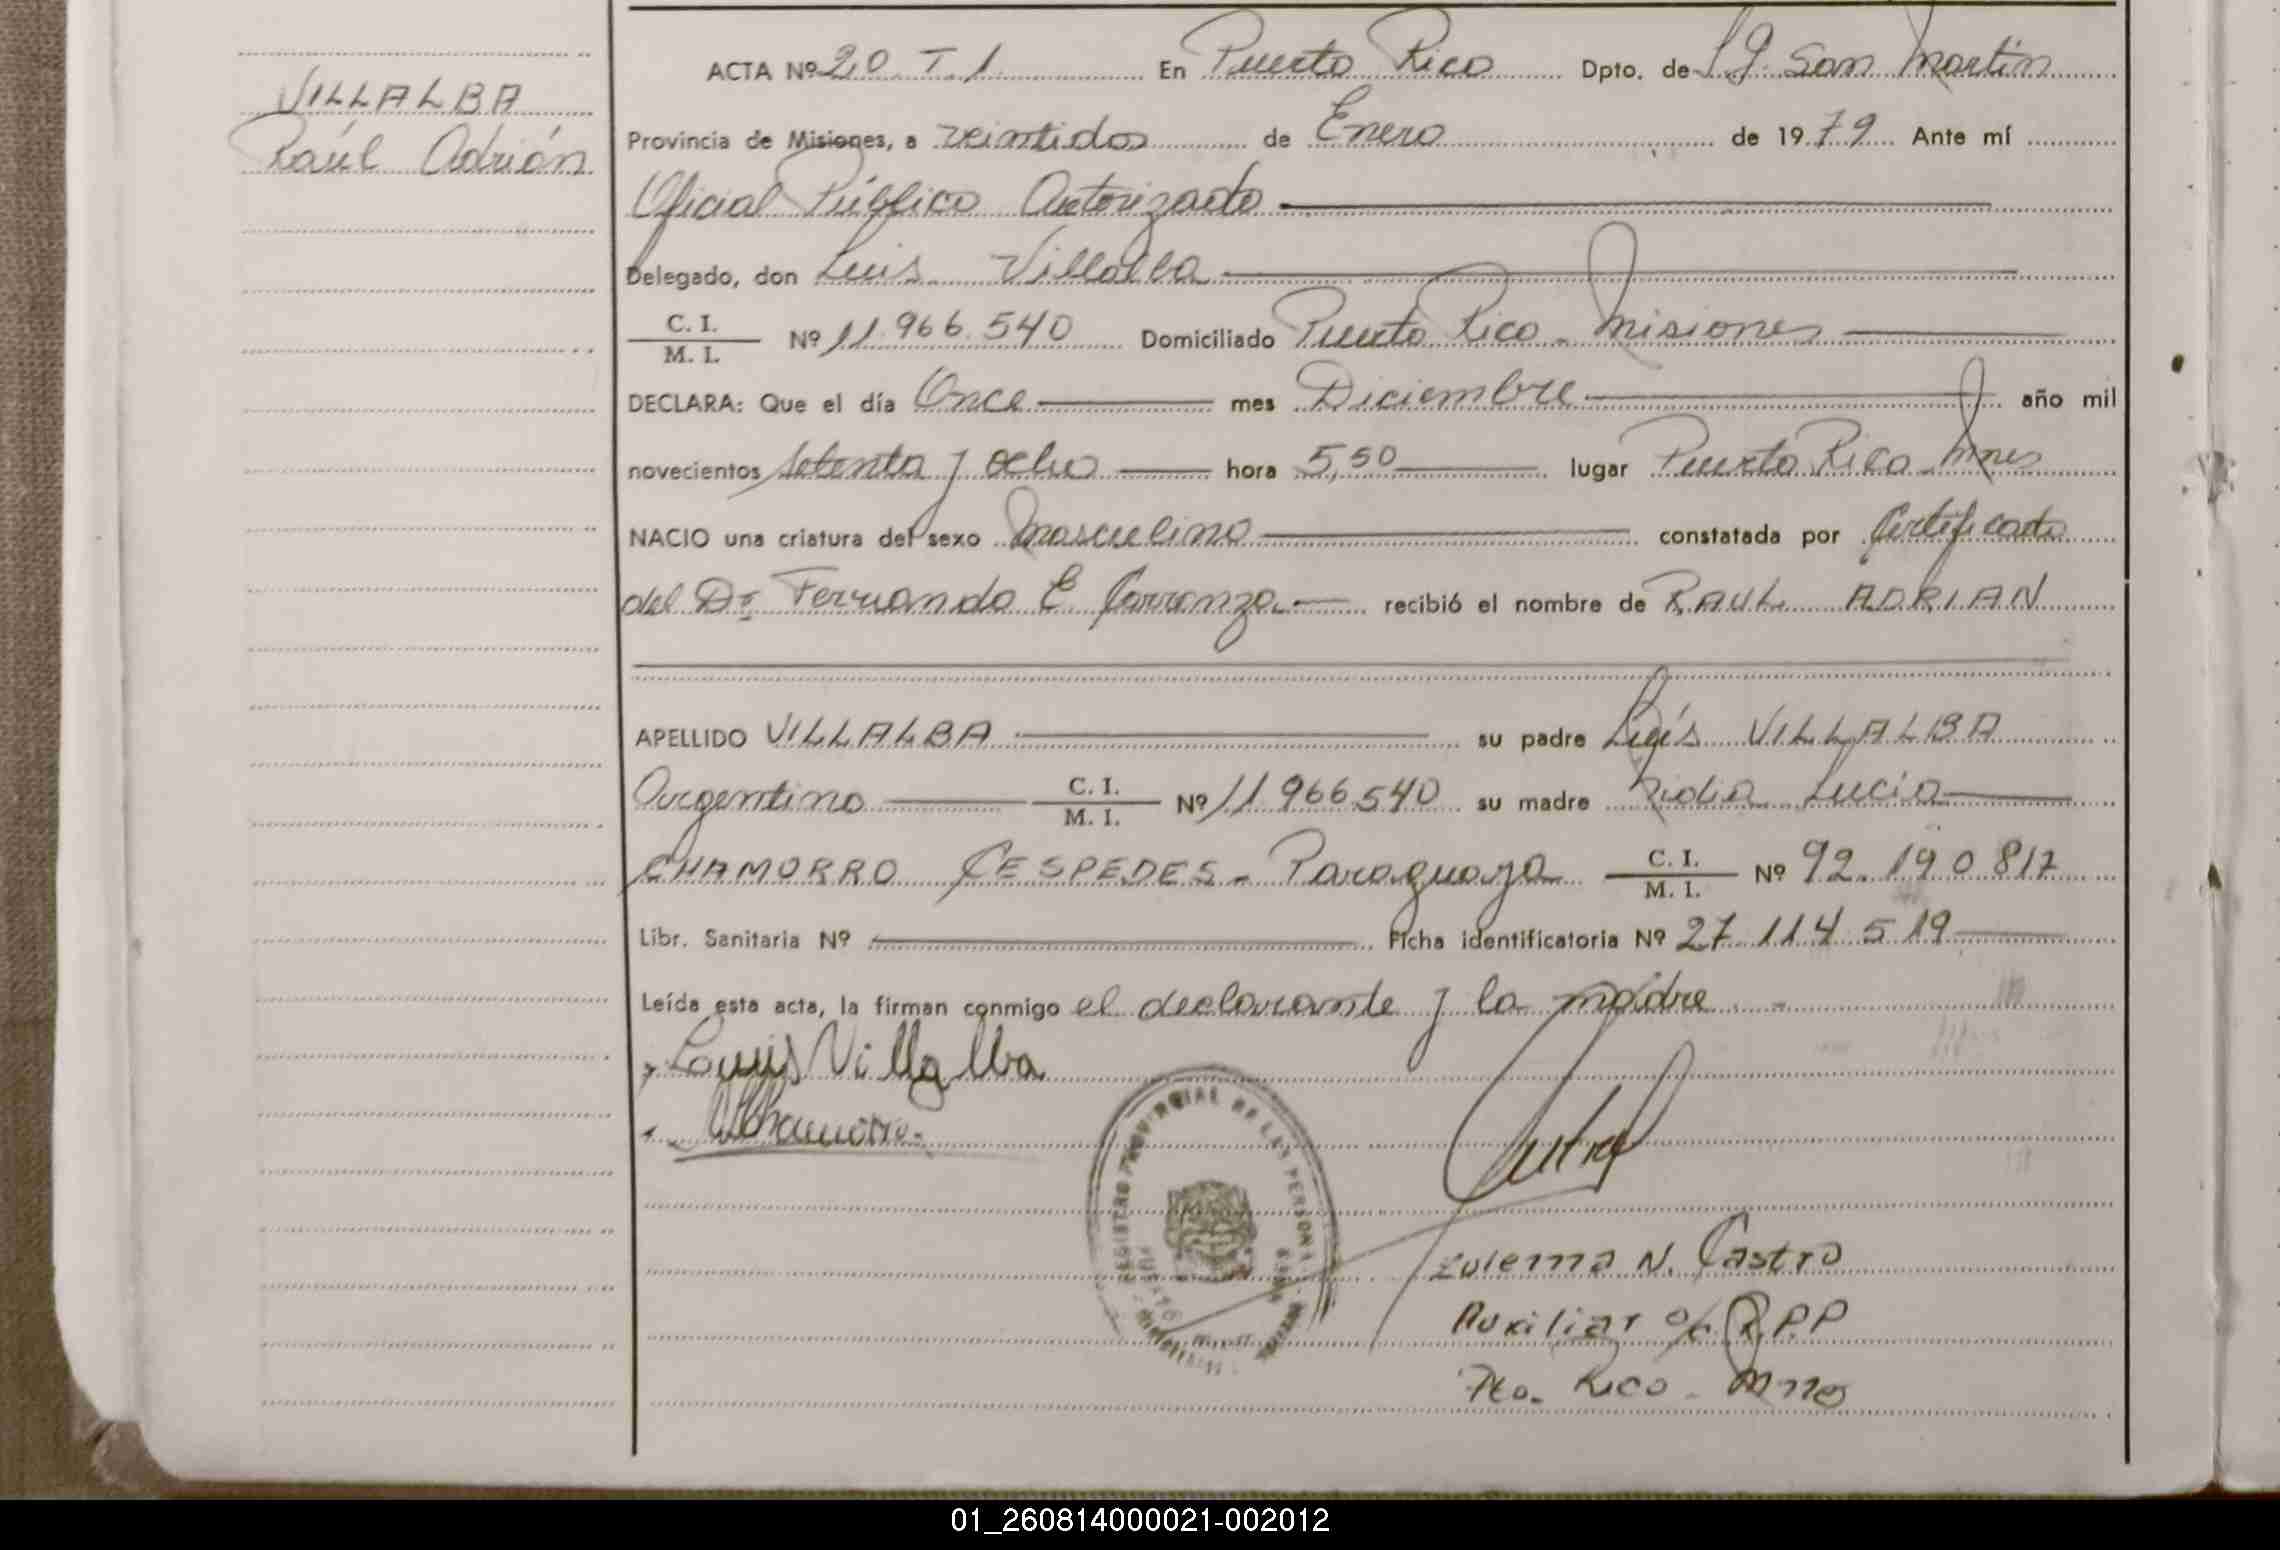 VILLALBA
Raúl Adrián
ACTA Nº 20 T. 1 En Puerto Rico Dpto. de L.G. San Martín
Provincia de Misiones, a veintidos de Enero de 1979 Ante mí
Oficial Público Autorizado
Delegado, don Luis Villalba
C. I. / M. I. Nº 11.966.540 Domiciliado Puerto Rico - Misiones
DECLARA: Que el día Once mes Diciembre año mil
novecientos setenta y ocho hora 5,50 lugar Puerto Rico - Mnes
NACIO una criatura del sexo Masculino constatada por Certificado
del Dr. Fernando E. Carranza recibió el nombre de RAUL ADRIAN
APELLIDO VILLALBA su padre Luis VILLALBA
Argentino C. I. / M. I. Nº 11.966.540 su madre Nidia Lucía
CHAMORRO CESPEDES - Paraguaya C. I. / M. I. Nº 92.190.817
Libr. Sanitaria Nº Ficha identificatoria Nº 27.114.519
Leída esta acta, la firman conmigo el declarante y la madre.-
Luis Villalba
Chamorro
REGISTRO PROVINCIAL DE LAS PERSONAS
Zulema N. Castro
Auxiliar o/c R.P.P
Pto. Rico - Mnes
01_260814000021-002012